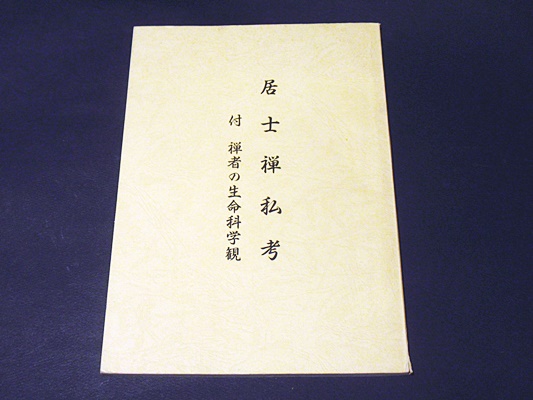 居士禅私考
付 禅者の生命科学観